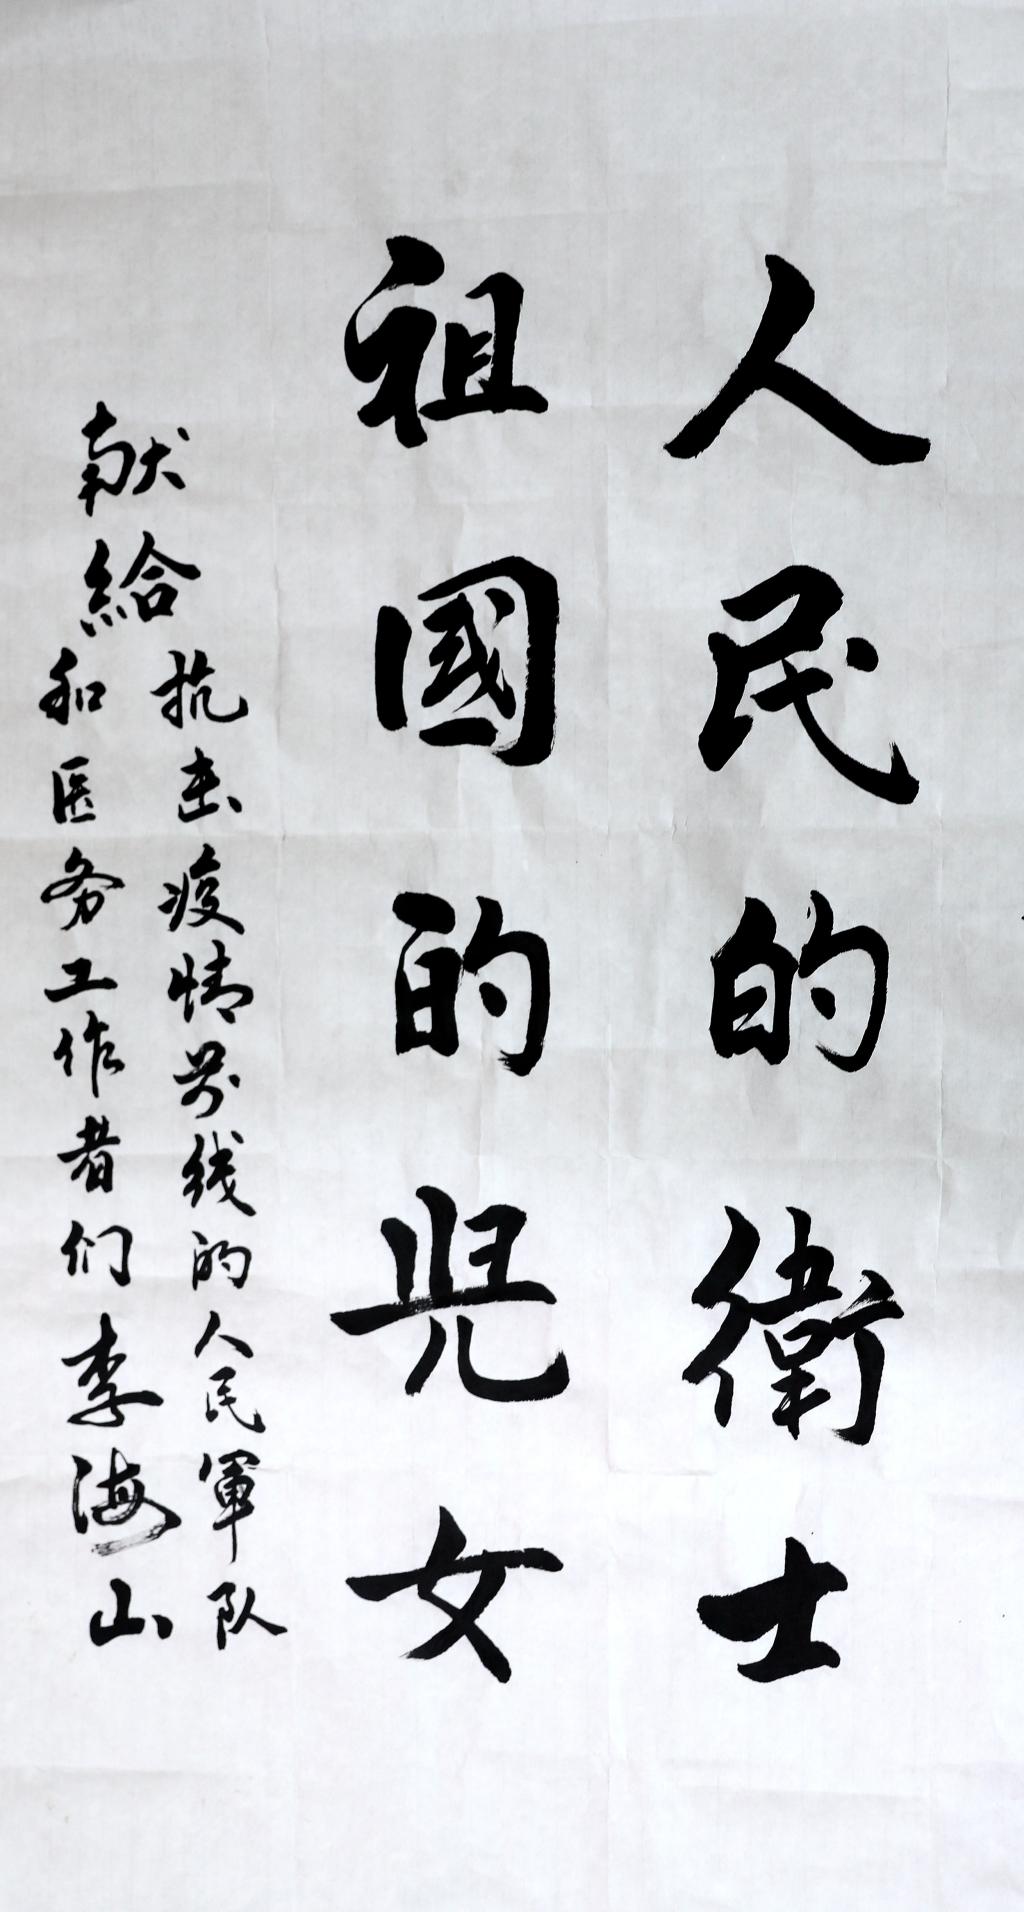 人民的衛士
祖國的児女
献給
抗击疫情前线的人民軍队
和医务工作者们李海山